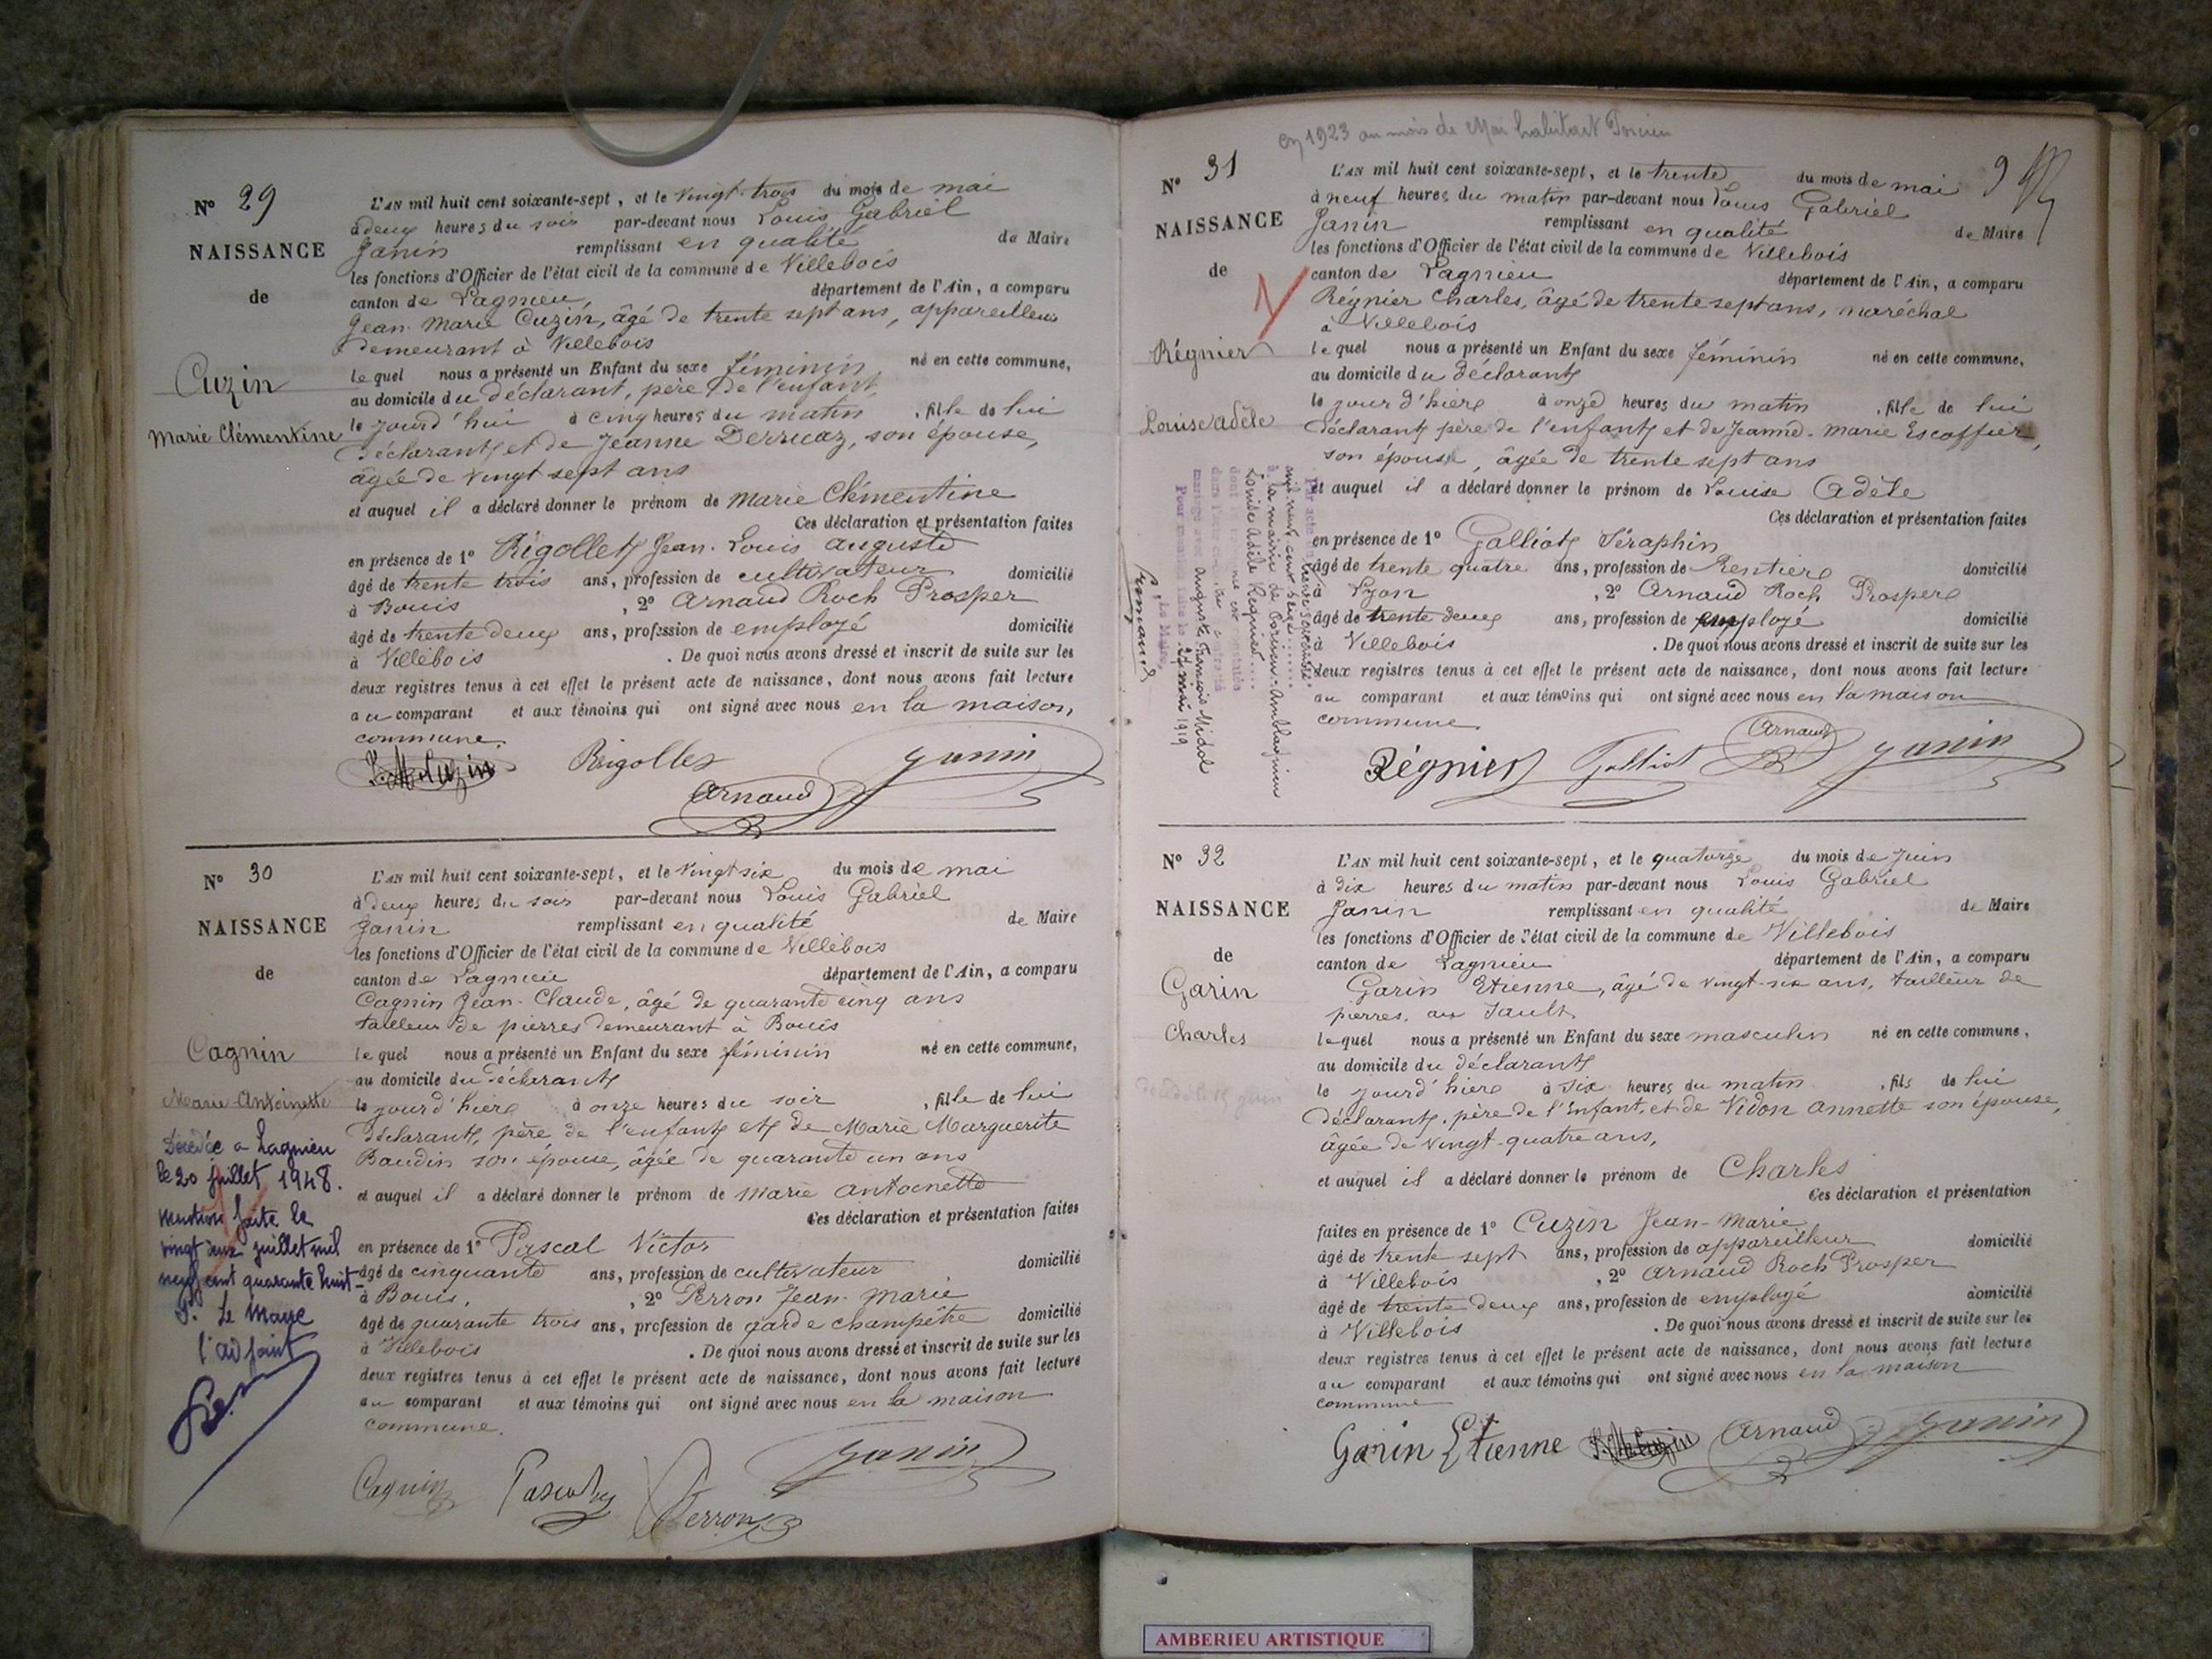 N° 29
NAISSANCE
de
Cuzin
Marie Clémentine
L'AN mil huit cent soixante-sept, et le vingt-trois du mois de mai
à deux heures du soir par-devant nous Louis Gabriel
Janin remplissant en qualité de Maire
les fonctions d'Officier de l'état civil de la commune de Villebois
canton de Lagnieu, département de l'Ain, a comparu
Jean-Marie Cuzin, âgé de trente sept ans, appareilleur
demeurant à Villebois
lequel nous a présenté un Enfant du sexe féminin né en cette commune,
au domicile du déclarant, père de l'enfant,
le jourd'hui à cinq heures du matin, fille de lui
déclarant et de Jeanne Derruaz, son épouse,
âgée de vingt sept ans
et auquel il a déclaré donner le prénom de Marie Clémentine
Ces déclaration et présentation faites
en présence de 1° Rigollet Jean-Louis Auguste
âgé de trente trois ans, profession de cultivateur domicilié
à Bouis, 2° Arnaud Roch Prosper
âgé de trente deux ans, profession de employé domicilié
à Villebois. De quoi nous avons dressé et inscrit de suite sur les
deux registres tenus à cet effet le présent acte de naissance, dont nous avons fait lecture
au comparant et aux témoins qui ont signé avec nous en la maison
commune.
J. M. Cuzin Rigollet Janin
Arnaud
N° 30
NAISSANCE
de
Cagnin
Marie-Antoinette
Décédée a Lagnieu
le 20 juillet 1948.
mention faite le
vingt deux juillet mil
neuf cent quarante huit-
P. Le Maire
l'adjoint
L'AN mil huit cent soixante-sept, et le vingt six du mois de mai
à deux heures du soir par-devant nous Louis Gabriel
Janin remplissant en qualité de Maire
les fonctions d'Officier de l'état civil de la commune de Villebois
canton de Lagnieu département de l'Ain, a comparu
Cagnin Jean-Claude, âgé de quarante cinq ans
tailleur de pierres demeurant à Bouis
lequel nous a présenté un Enfant du sexe féminin né en cette commune,
au domicile du déclarant
le jourd'hier à onze heures du soir, fille de lui
déclarant, père de l'enfant et de Marie Marguerite
Baudin son épouse, âgée de quarante un ans
et auquel il a déclaré donner le prénom de Marie Antoinette
Ces déclaration et présentation faites
en présence de 1° Pascal Victor
âgé de cinquante ans, profession de cultivateur domicilié
à Bouis, 2° Perron Jean-Marie
âgé de quarante trois ans, profession de garde champêtre domicilié
à Villebois. De quoi nous avons dressé et inscrit de suite sur les
deux registres tenus à cet effet le présent acte de naissance, dont nous avons fait lecture
au comparant et aux témoins qui ont signé avec nous en la maison
commune.
Cagnin Pascal Perron Janin
en 1923 au mois de Mai habitait
N° 31
NAISSANCE
de
Régnier
Louise Adèle
L'AN mil huit cent soixante-sept, et le trente du mois de mai
à neuf heures du matin par-devant nous Louis Gabriel
Janin remplissant en qualité de Maire
les fonctions d'Officier de l'état civil de la commune de Villebois
canton de Lagnieu département de l'Ain, a comparu
Régnier Charles, âgé de trente sept ans, maréchal
à Villebois
lequel nous a présenté un Enfant du sexe féminin né en cette commune,
au domicile du déclarant
le jour d'hier à onze heures du matin, fille de lui
déclarant père de l'enfant et de Jeanne-Marie Escoffier,
son épouse, âgée de trente sept ans
et auquel il a déclaré donner le prénom de Louise Adèle
Ces déclaration et présentation faites
en présence de 1° Galliot Séraphin
âgé de trente quatre ans, profession de Rentier domicilié
à Lyon, 2° Arnaud Roch Prosper
âgé de trente deux ans, profession de employé domicilié
à Villebois. De quoi nous avons dressé et inscrit de suite sur les
deux registres tenus à cet effet le présent acte de naissance, dont nous avons fait lecture
au comparant et aux témoins qui ont signé avec nous en la maison
commune
Régnier Galliot Arnaud Janin
mil neuf cent seize
à la mairie de
Louise Adèle Régnier
mariage avec Auguste François Midol
mai 1919
Le Maire,
N° 32
NAISSANCE
de
Garin
Charles
L'AN mil huit cent soixante-sept, et le quatorze du mois de juin
à dix heures du matin par-devant nous Louis Gabriel
Janin remplissant en qualité de Maire
les fonctions d'Officier de l'état civil de la commune de Villebois
canton de Lagnieu département de l'Ain, a comparu
Garin Etienne, âgé de vingt-six ans, tailleur de
pierres, au Sault
lequel nous a présenté un Enfant du sexe masculin né en cette commune,
au domicile du déclarant
le jourd'hier à six heures du matin, fils de lui
déclarant, père de l'Enfant, et de Vidon Annette son épouse,
âgée de vingt-quatre ans,
et auquel il a déclaré donner le prénom de Charles
Ces déclaration et présentation
faites en présence de 1° Cuzin Jean-Marie
âgé de trente sept ans, profession de appareilleur domicilié
à Villebois, 2° Arnaud Roch Prosper
âgé de trente deux ans, profession de employé domicilié
à Villebois. De quoi nous avons dressé et inscrit de suite sur les
deux registres tenus à cet effet le présent acte de naissance, dont nous avons fait lecture
au comparant et aux témoins qui ont signé avec nous en la maison
commune
Garin Etienne J. M. Cuzin Arnaud Janin
AMBERIEU ARTISTIQUE